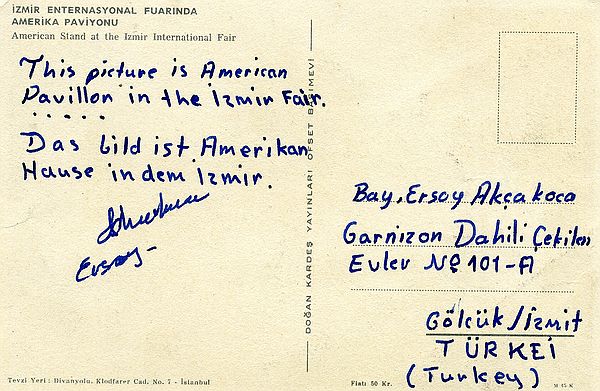 İZMİR ENTERNASYONAL FUARINDA
AMERİKA PAVİYONU
American Stand at the Izmir International Fair
This picture is American
Pavillon in the İzmir Fair.
.....
Das bild ist Amerikan
Hause in dem İzmir.
Ersoy-
DOĞAN KARDEŞ YAYINLARI OFSET BASIMEVİ
Bay, Ersoy Akçakoca
Garnizon Dahili Çekilen
Evler № 101-A
Gölcük/İzmit
TÜRKEİ
(Turkey)
Tevzi Yeri: Divanyolu. Klodfarer Cad. No. 7 - İstanbul
Fiatı 50 Kr.
M 45 K